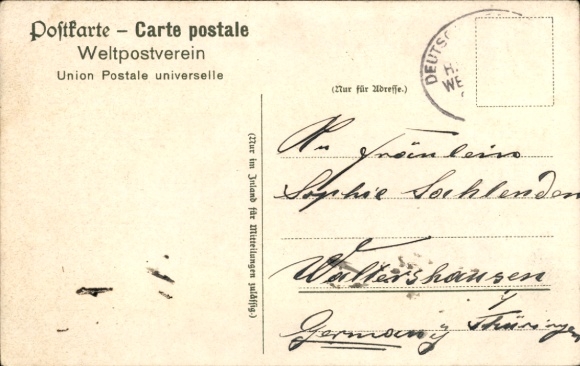 Postkarte – Carte postale
Weltpostverein
Union Postale universelle
(Nur für Adresse.)
DEUTSC
H
WE
(Nur im Inland für Mitteilungen zulässig.)
An Fräulein
Sophie Sahlender
Waltershausen
i/ Thüringen
Germany